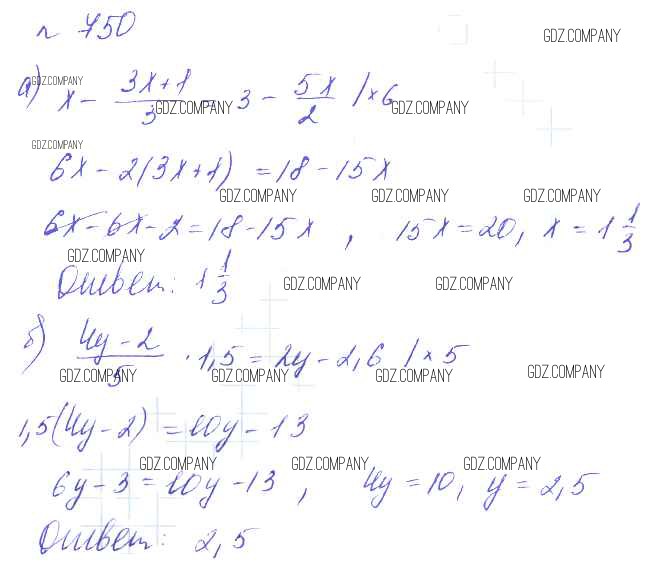 № 750
GDZ.COMPANY
а) x - (3x+1)/3 = 3 - 5x/2 /×6
GDZ.COMPANY GDZ.COMPANY GDZ.COMPANY
GDZ.COMPANY
6x - 2(3x+1) = 18 - 15x
GDZ.COMPANY GDZ.COMPANY GDZ.COMPANY
6x - 6x - 2 = 18 - 15x, 15x = 20, x = 1 1/3
GDZ.COMPANY
Ответ: 1 1/3
GDZ.COMPANY GDZ.COMPANY
б) (4y-2)/5 · 1,5 = 2y - 2,6 /×5
GDZ.COMPANY GDZ.COMPANY GDZ.COMPANY GDZ.COMPANY
1,5(4y-2) = 10y - 13
GDZ.COMPANY GDZ.COMPANY GDZ.COMPANY
6y - 3 = 10y - 13, 4y = 10, y = 2,5
Ответ: 2,5